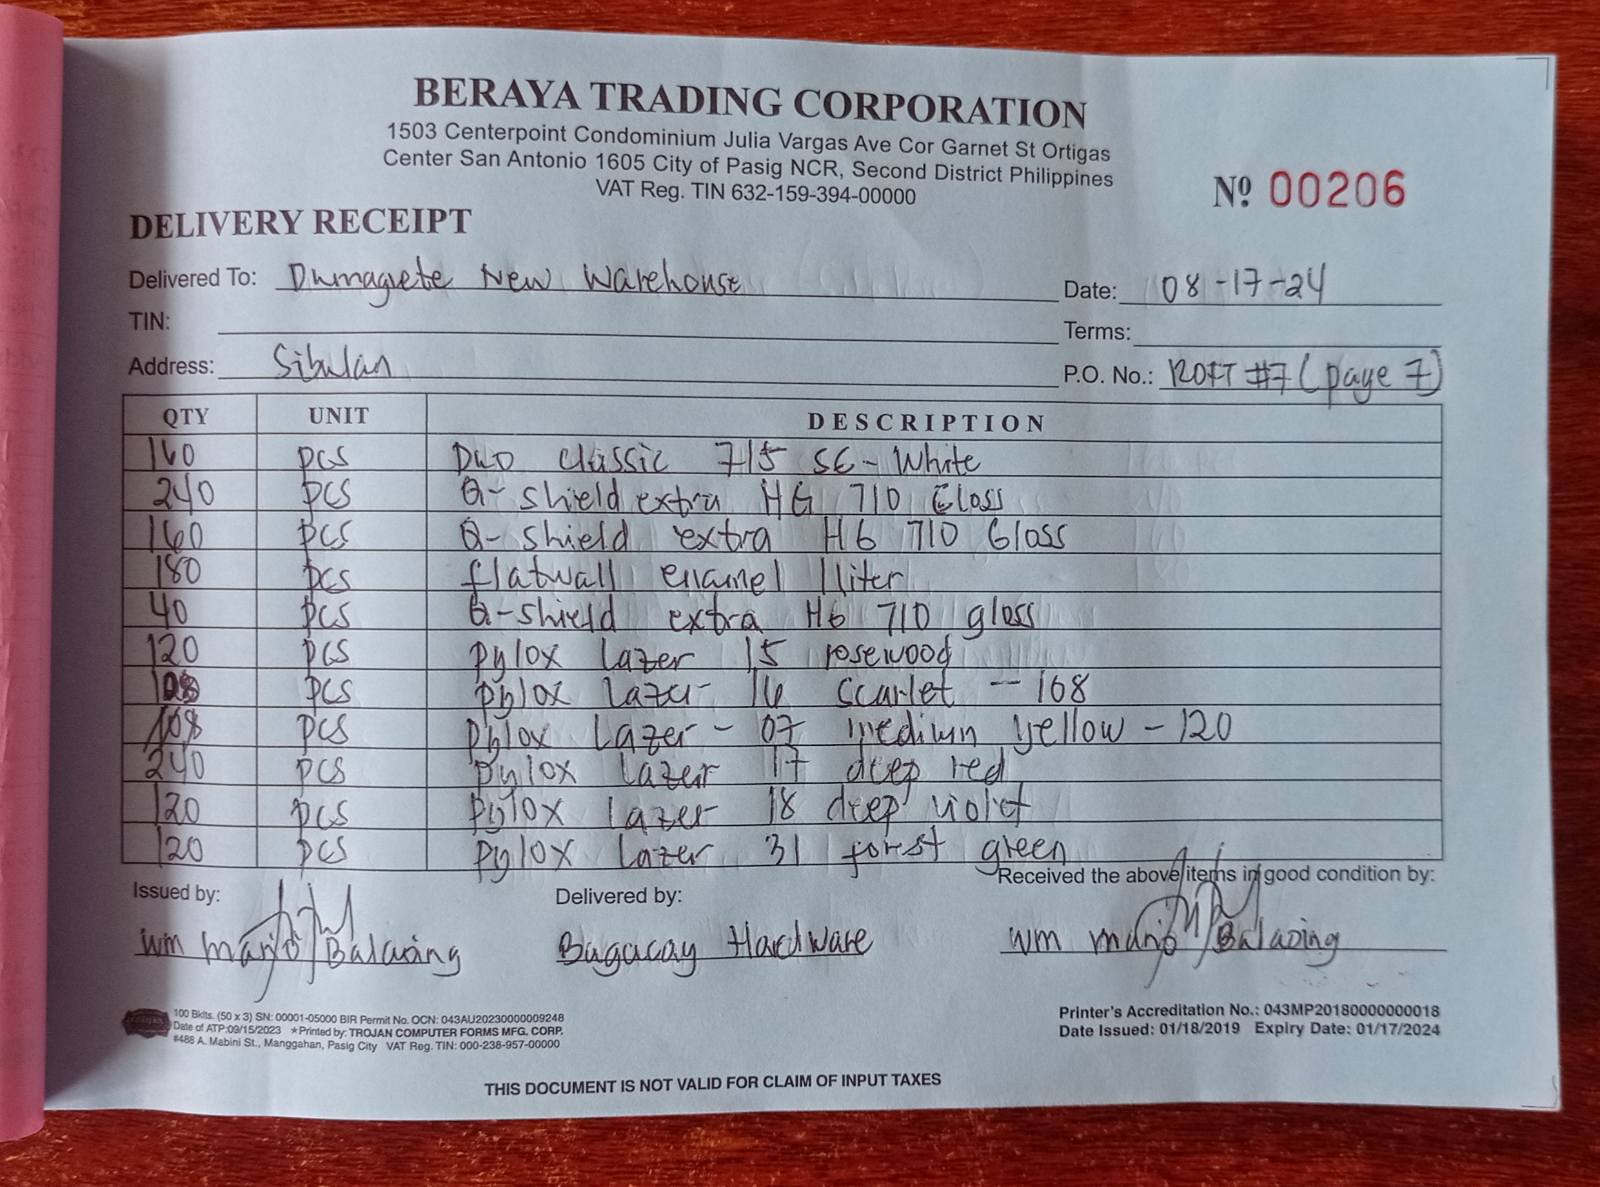 BERAYA TRADING CORPORATION
1503 Centerpoint Condominium Julia Vargas Ave Cor Garnet St Ortigas
Center San Antonio 1605 City of Pasig NCR, Second District Philippines
VAT Reg. TIN 632-159-394-00000
Nº 00206
DELIVERY RECEIPT
Delivered To: Dumaguete New Warehouse Date: 08-17-24
TIN: Terms:
Address: Sibulan P.O. No.: #7 (page 7)
QTY UNIT DESCRIPTION
160 pcs Duo classic 715 SG- White
240 pcs Q-shield extra HG 710 Gloss
160 pcs Q-shield extra HG 710 Gloss
180 pcs flatwall enamel 1liter
40 pcs Q-shield extra HG 710 gloss
120 pcs pylox lazer 15 rosewood
108 pcs pylox lazer 16 scarlet - 108
108 pcs pylox lazer - 07 medium yellow - 120
240 pcs pylox lazer 17 deep red
120 pcs pylox lazer 18 deep violet
120 pcs pylox lazer 31 forest green
Issued by: Delivered by: Received the above items in good condition by:
wm Bugacay Hardware wm
100 Bklts. (50 x 3) SN: 00001-05000 BIR Permit No. OCN: 043AU20230000009248
Date of ATP:09/15/2023 *Printed by: TROJAN COMPUTER FORMS MFG. CORP.
#488 A. Mabini St., Manggahan, Pasig City VAT Reg. TIN: 000-238-957-00000
Printer's Accreditation No.: 043MP20180000000018
Date Issued: 01/18/2019 Expiry Date: 01/17/2024
THIS DOCUMENT IS NOT VALID FOR CLAIM OF INPUT TAXES